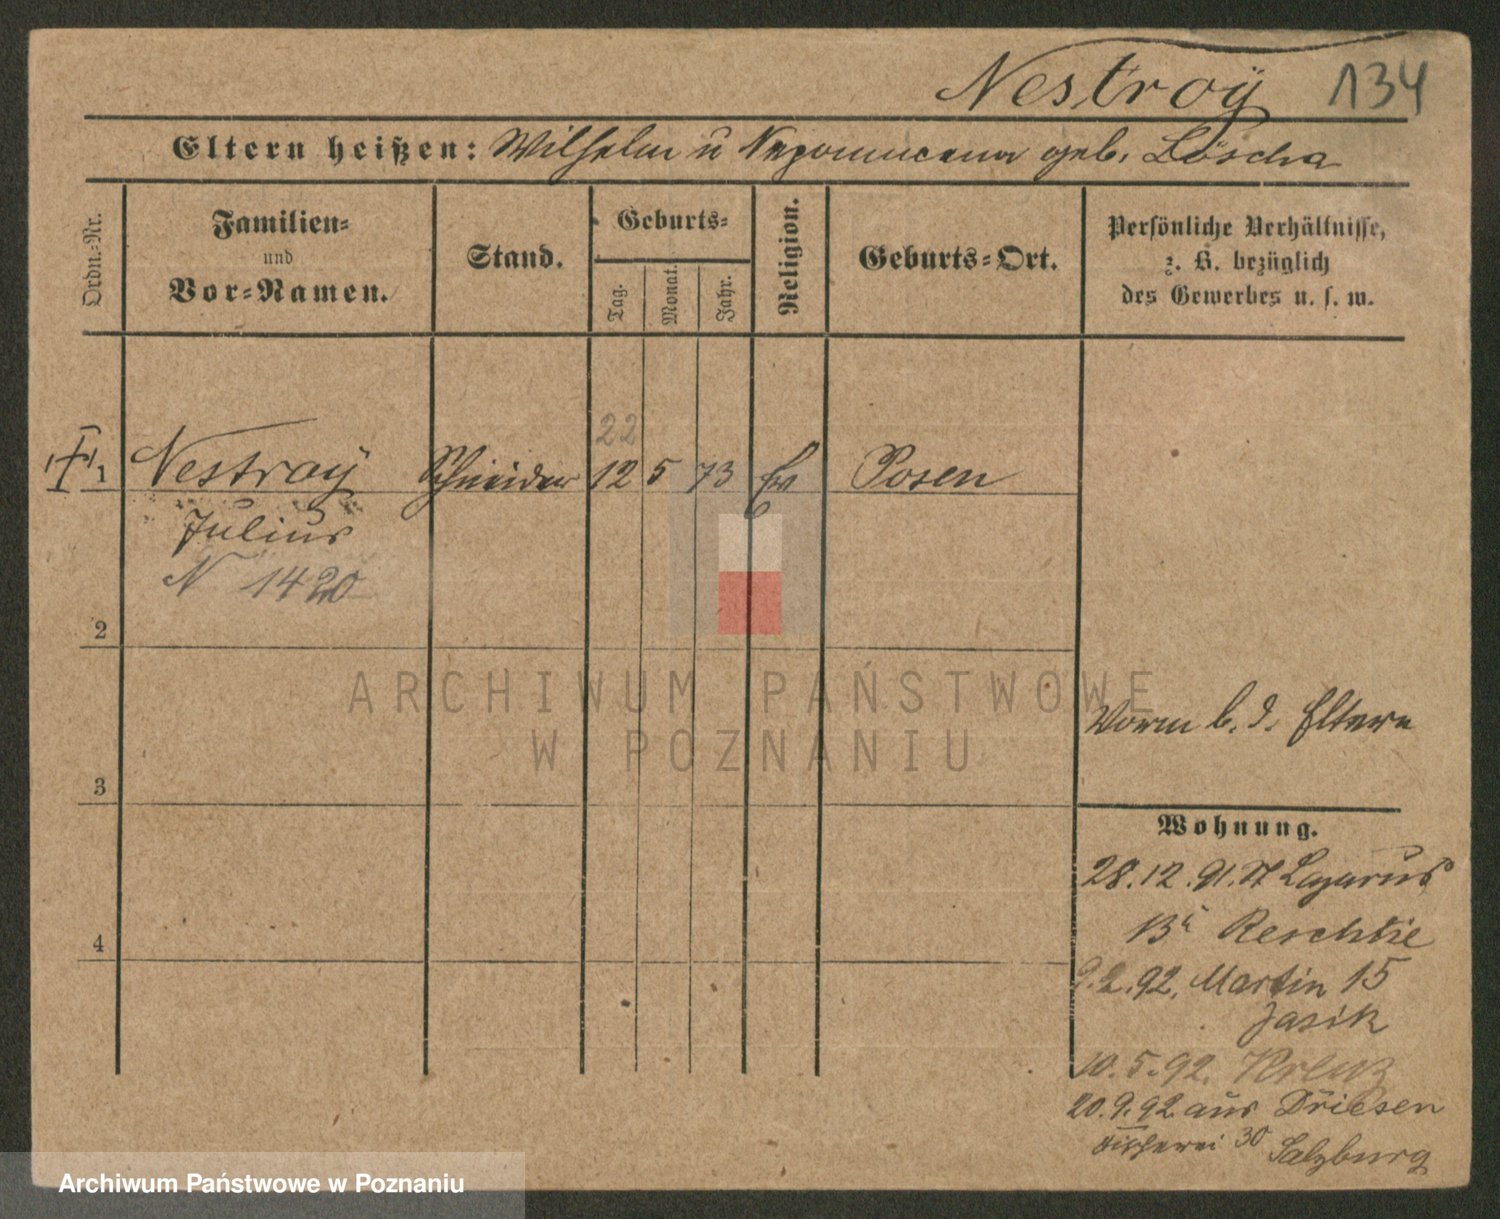 Nestroÿ 134
Eltern heißen: Wilhelm u Nepomucena geb. Löscha
Ordn.-Nr.
Familien-
und
Vor-Namen.
Stand.
Geburts-
Tag.
Monat.
Jahr.
Religion.
Geburts-Ort.
Persönliche Verhältnisse,
z. B. bezüglich
des Gewerbes u. s. w.
22
1 Nestroÿ Schneider 12 5 73 Ev Posen
Julius
N 1420
2
3
4
ARCHIWUM PAŃSTWOWE
W POZNANIU
Vorm b. d. Eltern
Wohnung.
28.12.91. St Lazarus
13 Reschke
9.2.92. Martin 15
Jasik
10.5.92. Kreuz
20.9.92 aus Driesen
Fischerei 30 Salzburg
Archiwum Państwowe w Poznaniu